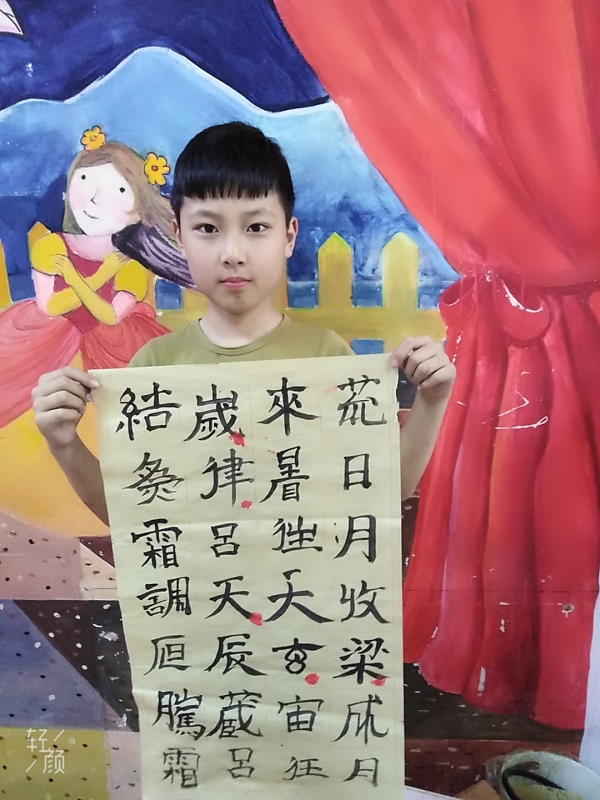 荒日月收梁成月
來暑往天玄宙往
歲律呂天辰藏呂
結霜調騰霜
轻颜